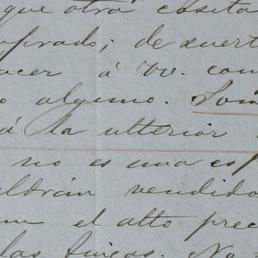 que otra cosita
prado; de suert
acer á Vv. con
o alguno. Som
á la ulterior
no es una esp
ldrán vendido
el alto prec
las fincas. No